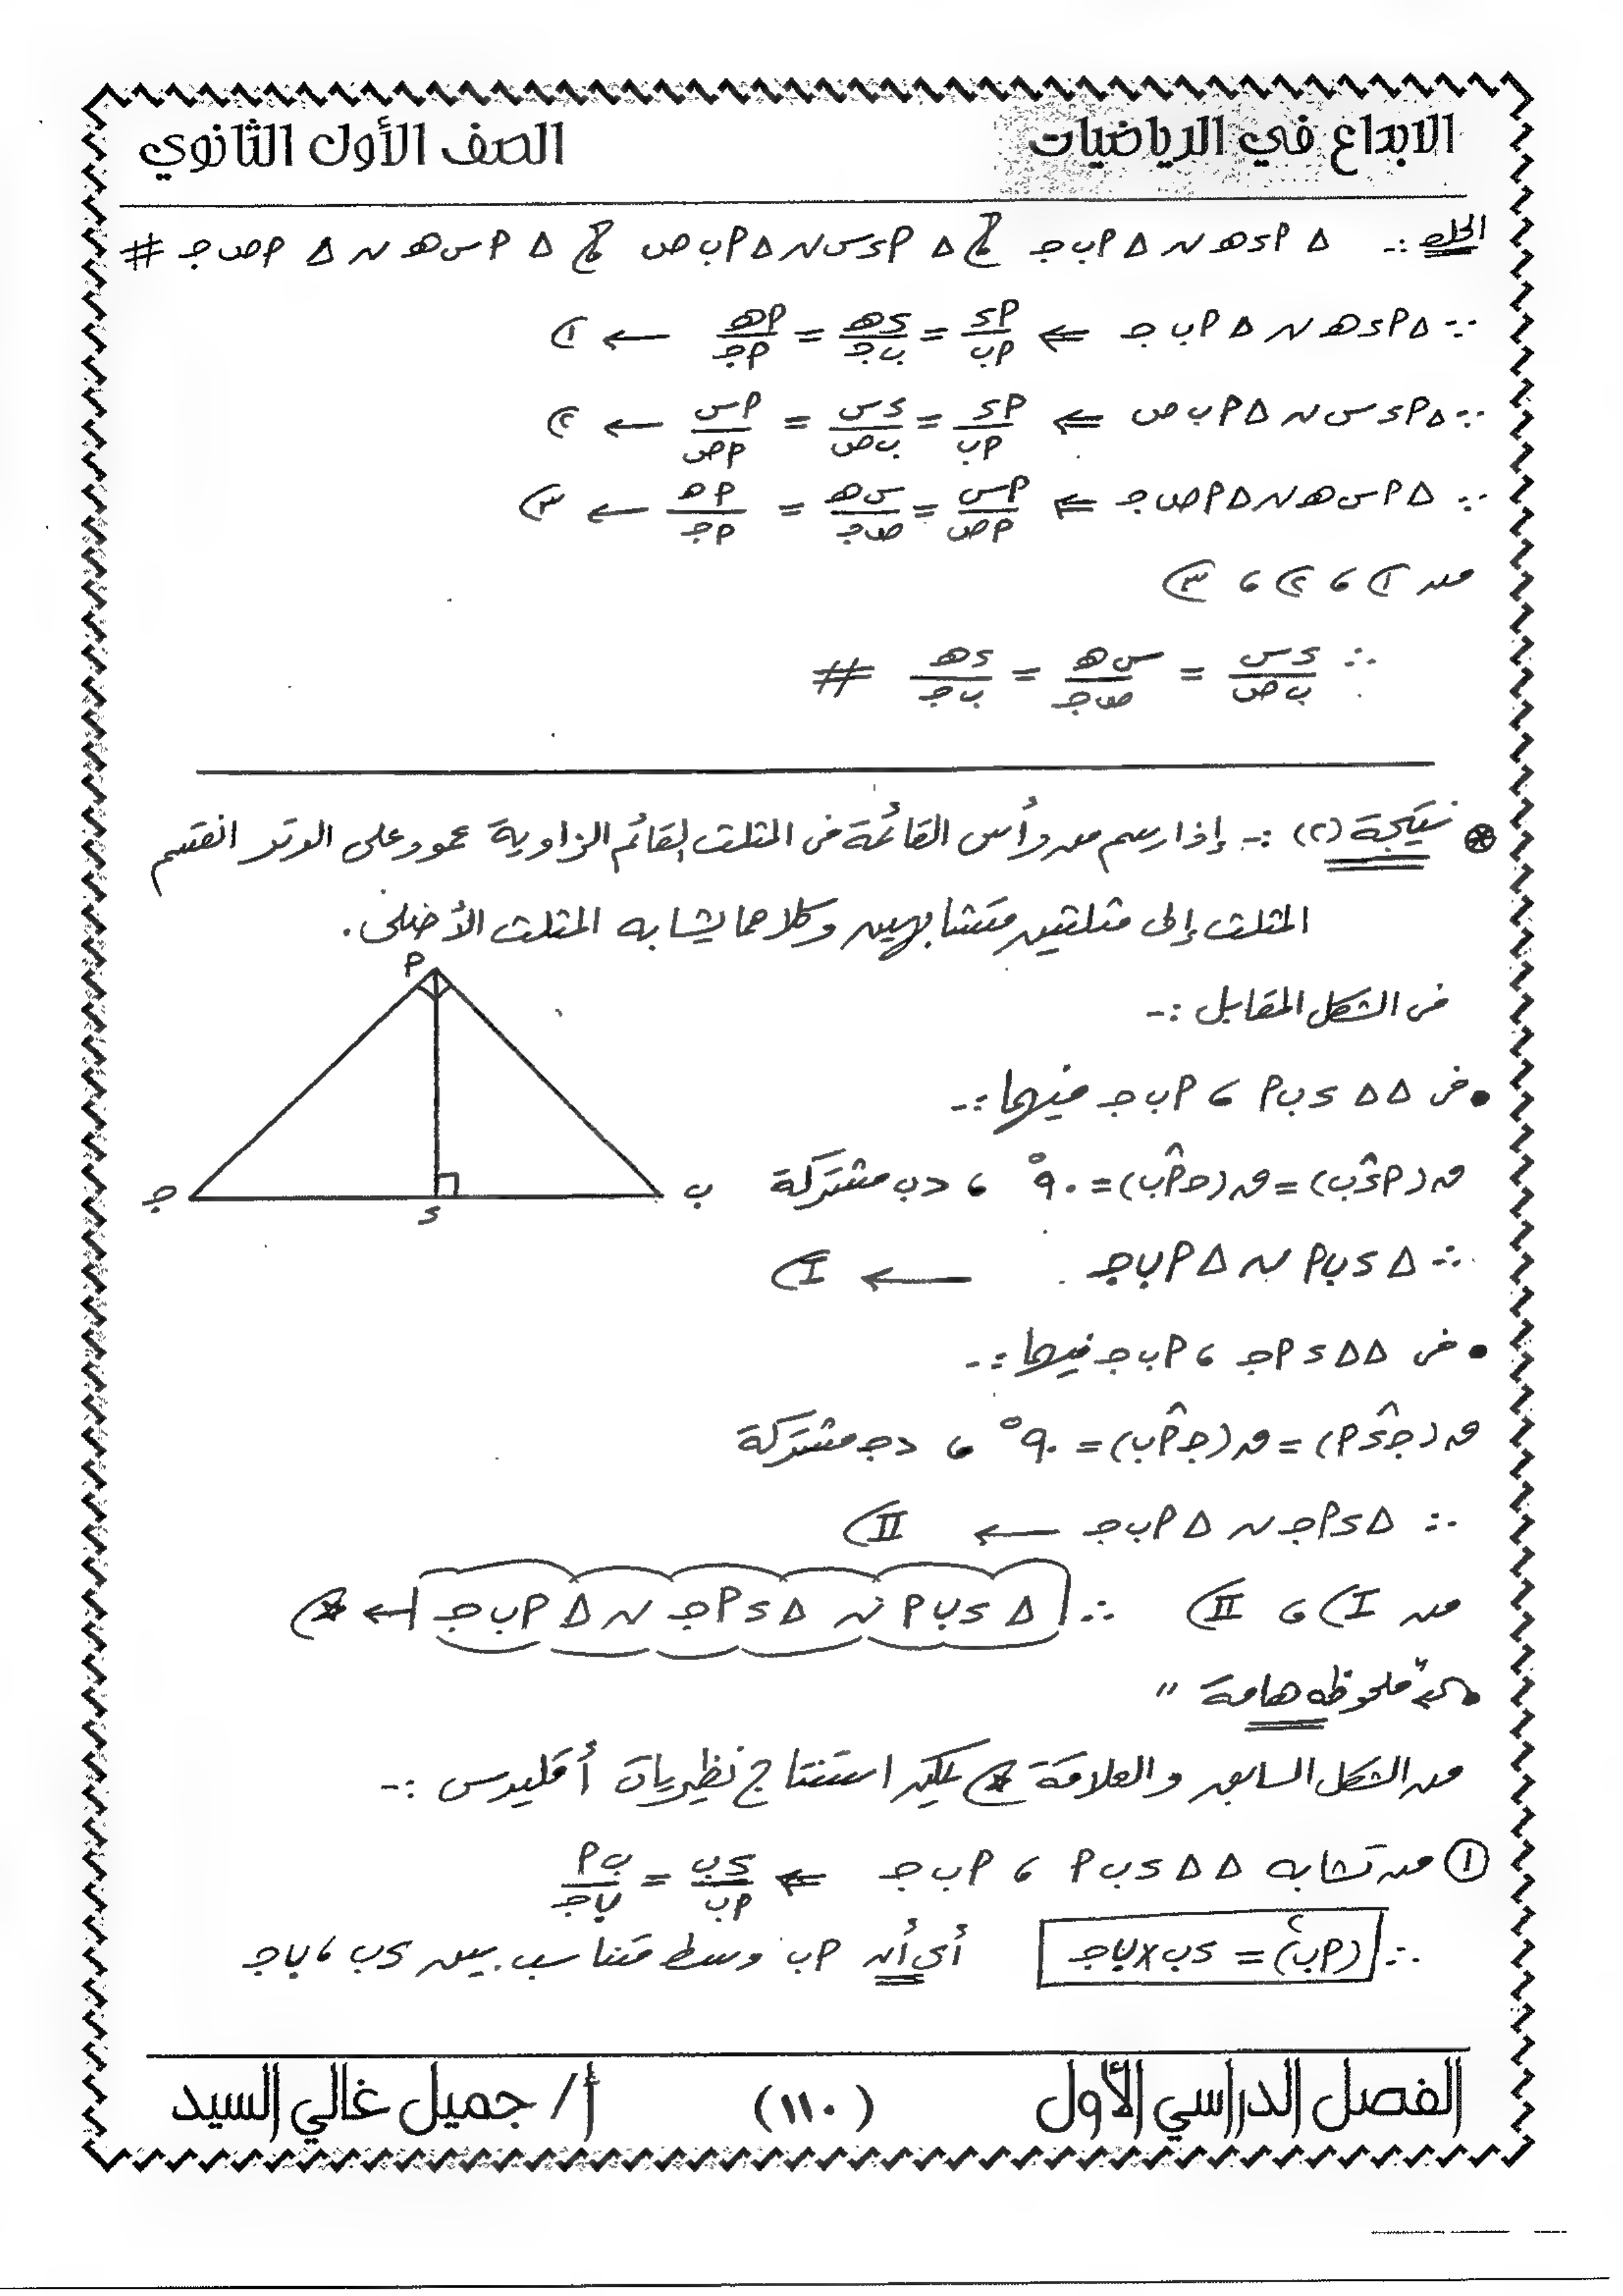 الابداع في الرياضيات
الصف الأول الثانوي
الحل :- △ أ د هـ ~ △ أ ب جـ ، △ أ د س ~ △ أ ب ص ، △ أ س هـ ~ △ أ ص جـ #
∵ △ أ د هـ ~ △ أ ب جـ ⇐ أد/أب = دهـ/ب جـ = أهـ/أجـ ← (١)
∵ △ أ د س ~ △ أ ب ص ⇐ أد/أب = دس/ب ص = أس/أص ← (٢)
∵ △ أ س هـ ~ △ أ ص جـ ⇐ أس/أص = س هـ/ص جـ = أهـ/أجـ ← (٣)
من (١) ، (٢) ، (٣)
∴ د س/ب ص = س هـ/ص جـ = د هـ/ب جـ #
نتيجة (٢) :- إذا رسم من رأس القائمة في المثلث القائم الزاوية عمود على الوتر انقسم
المثلث إلى مثلثين متشابهين وكلاهما يشابه المثلث الأصلى .
أ
جـ
د
ب
في الشكل المقابل :-
• في △△ د ب أ ، أ ب جـ فيهما :-
ق(أ د̂ ب) = ق(جـ أ̂ ب) = ٩٠° ، > ب مشتركة
∴ △ د ب أ ~ △ أ ب جـ ← (I)
• في △△ د أ جـ ، أ ب جـ فيهما :-
ق(جـ د̂ أ) = ق(جـ أ̂ ب) = ٩٠° ، > جـ مشتركة
∴ △ د أ جـ ~ △ أ ب جـ ← (II)
من (I) ، (II) ∴ △ د ب أ ~ △ د أ جـ ~ △ أ ب جـ ← (*)
" ملحوظه هامة "
من الشكل السابق والعلامة (*) يمكن استنتاج نظريات أقليدس :-
(١) من تشابه △△ د ب أ ، أ ب جـ ⇐ د ب/أ ب = ب أ/ب جـ
∴ (أ ب)٢ = د ب × ب جـ أى أن أ ب وسط متناسب بين د ب ، ب جـ
الفصل الدراسي الأول
(١١٠)
أ / جميل غالي السيد